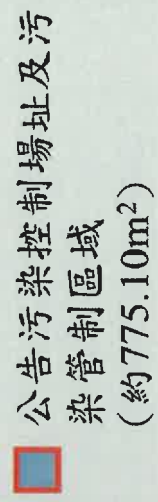 公告污染控制場址及污
染管制區域
(約775.10m²)